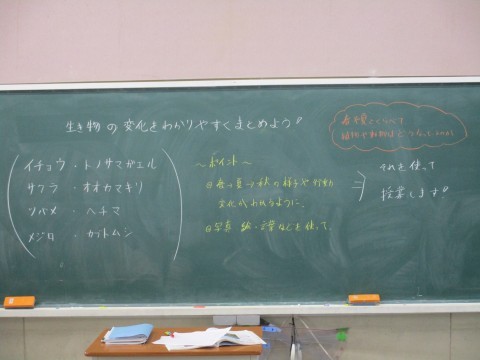 生き物の変化をわかりやすくまとめよう!!
春や夏とくらべて
植物や動物はどうなっているかな?
イチョウ・トノサマガエル
サクラ・オオカマキリ
ツバメ・ヘチマ
メジロ・カブトムシ
〜ポイント〜
①春→夏→秋の様子や行動
変化がわかるように。
②写真 絵・文章などを使って。
⇒
それを使って
授業します!!